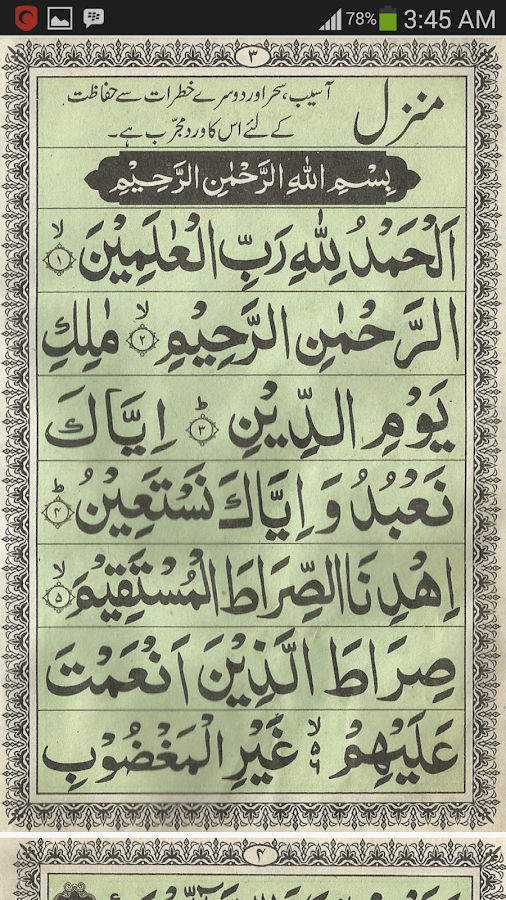 78% 3:45 AM
۳
منزل
آسیب، سحر اور دوسرے خطرات سے حفاظت
کے لئے اس کا ورد مجرّب ہے۔
بِسْمِ اللهِ الرَّحْمٰنِ الرَّحِيْمِ
اَلْحَمْدُ لِلّٰهِ رَبِّ الْعٰلَمِيْنَ ۙ ۱
الرَّحْمٰنِ الرَّحِيْمِ ۙ ۲ مٰلِكِ
يَوْمِ الدِّيْنِ ؕ ۳ اِيَّاكَ
نَعْبُدُ وَ اِيَّاكَ نَسْتَعِيْنُ ؕ ۴
اِهْدِنَا الصِّرَاطَ الْمُسْتَقِيْمَ ۙ ۵
صِرَاطَ الَّذِيْنَ اَنْعَمْتَ
عَلَيْهِمْ ۙ ۵ ۶ غَيْرِ الْمَغْضُوْبِ
۴